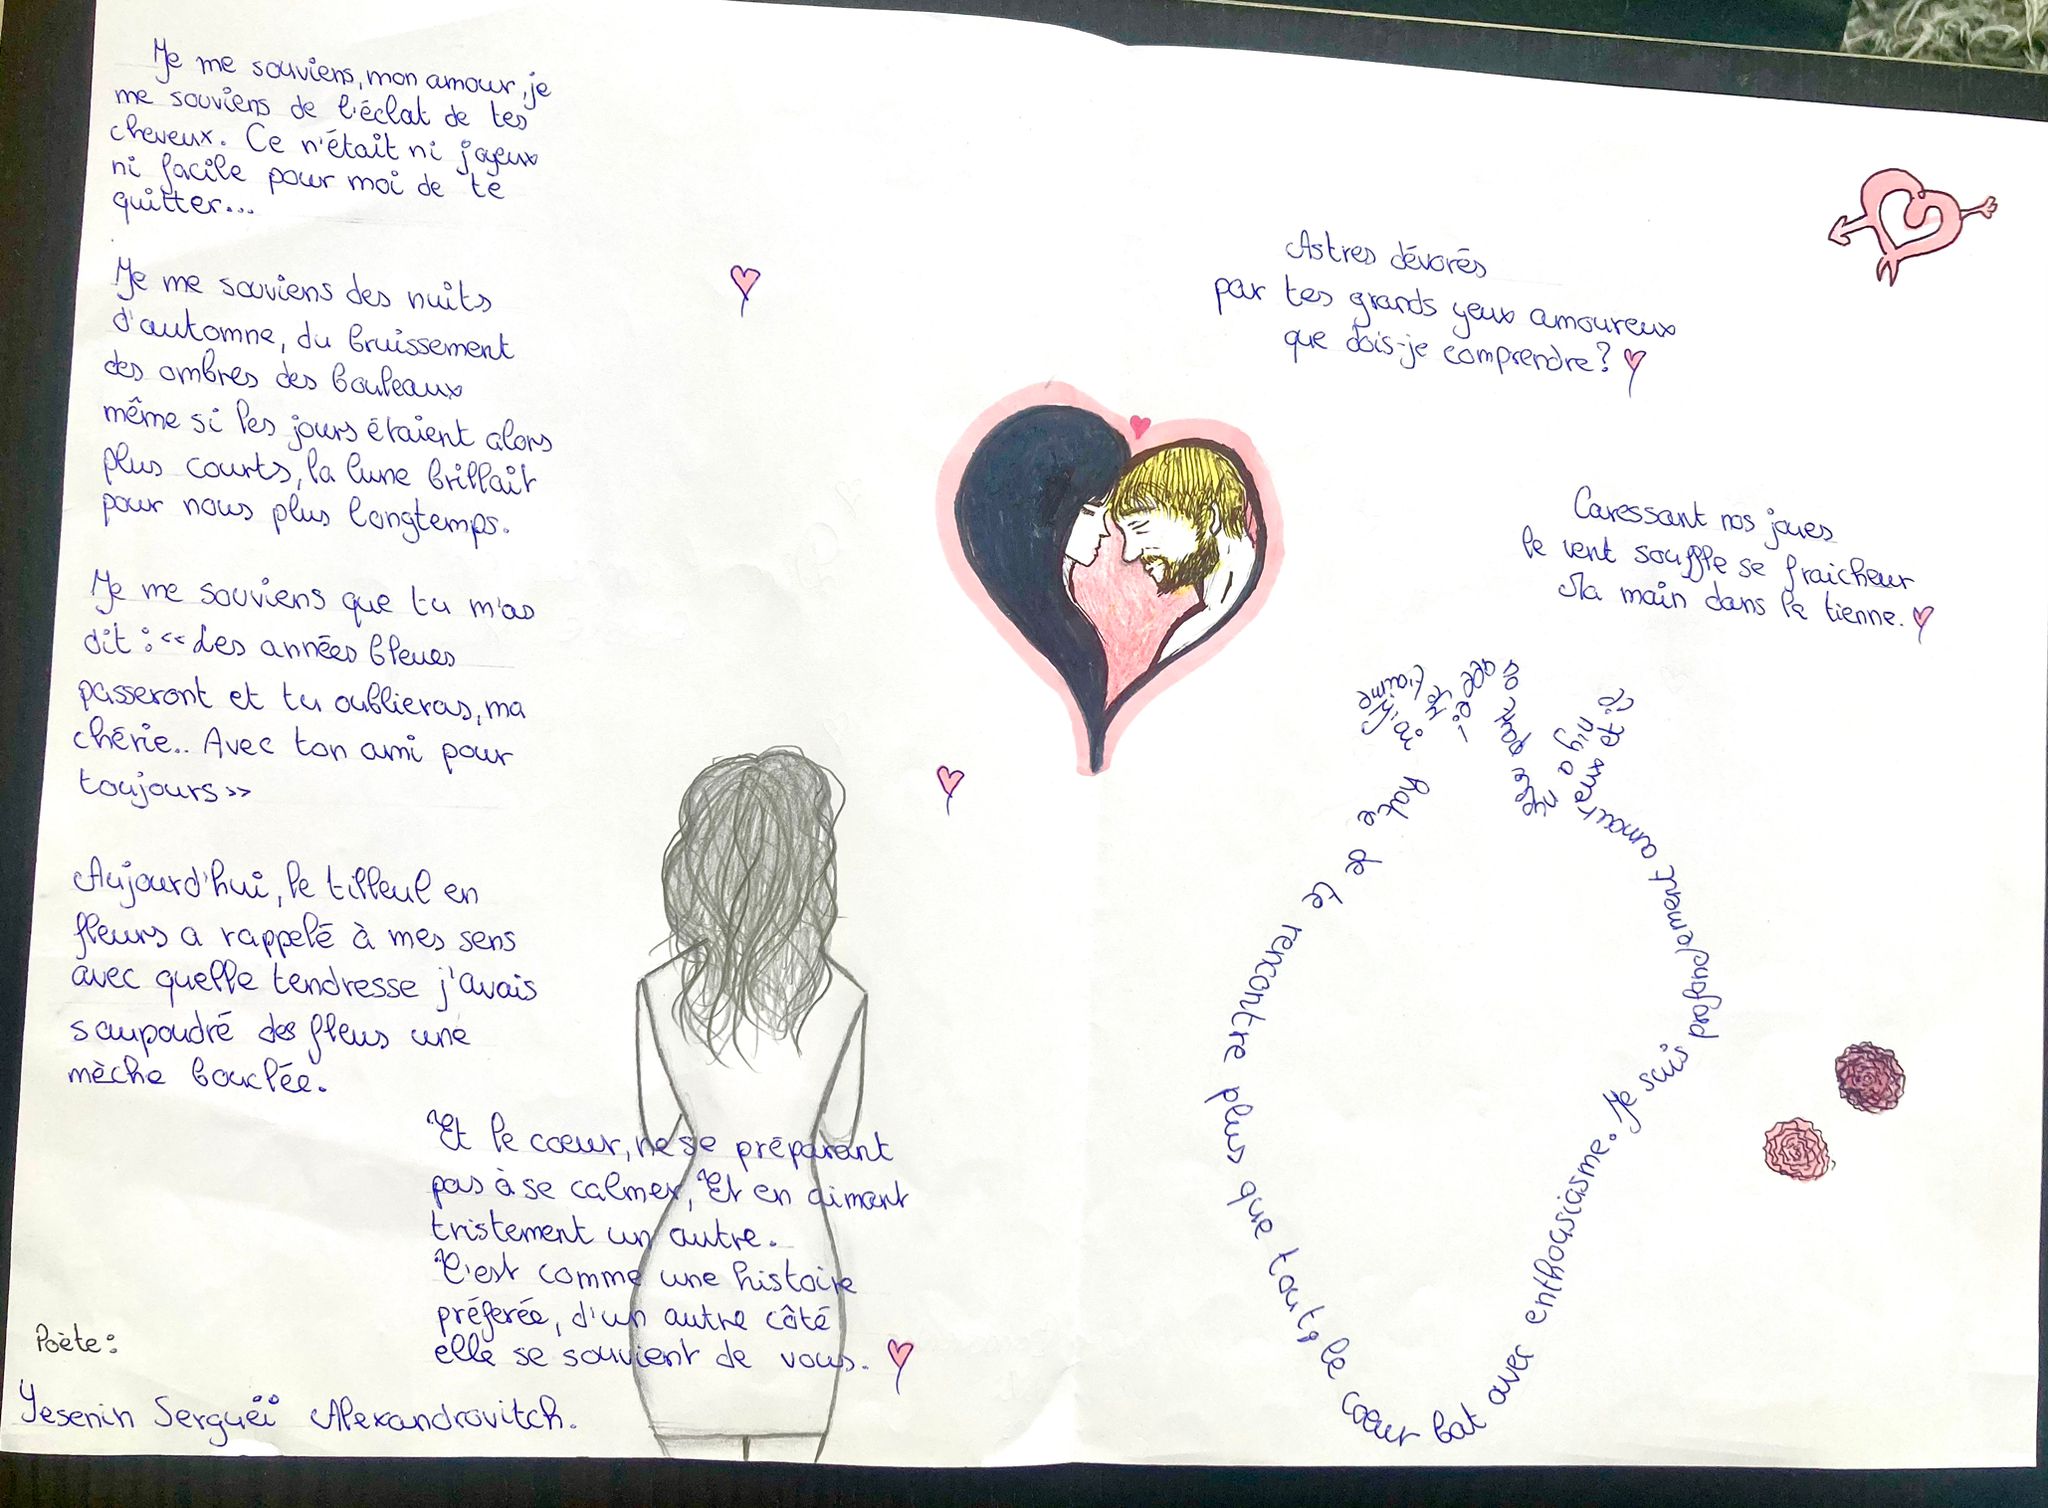 Je me souviens, mon amour, je
me souviens de l'éclat de tes
cheveux. Ce n'était ni joyeux
ni facile pour moi de te
quitter...
Je me souviens des nuits
d'automne, du bruissement
des ombres des bouleaux
même si les jours étaient alors
plus courts, la lune brillait
pour nous plus longtemps.
Je me souviens que tu m'as
dit : << Les années bleues
passeront et tu oublieras, ma
chérie.. Avec ton ami pour
toujours >>
Aujourd'hui, le tilleul en
fleurs a rappelé à mes sens
avec quelle tendresse j'avais
saupoudré des fleus une
mèche bouclée.
Et le cœur, ne se préparant
pas à se calmer, Et en aimant
tristement un autre.
C'est comme une histoire
préferée, d'un autre côté
elle se souvient de vous.
Poète :
Yesenin Sergueïi Alexandrovitch.
Astres dévorés
par tes grands yeux amoureux
que dois-je comprendre ?
Caressant nos joues
le vent souffle se fraicheur
Ma main dans la tienne.
hate de te rencontre plus que tout, le cœur bat avec enthousiasme. Je suis profondement amour